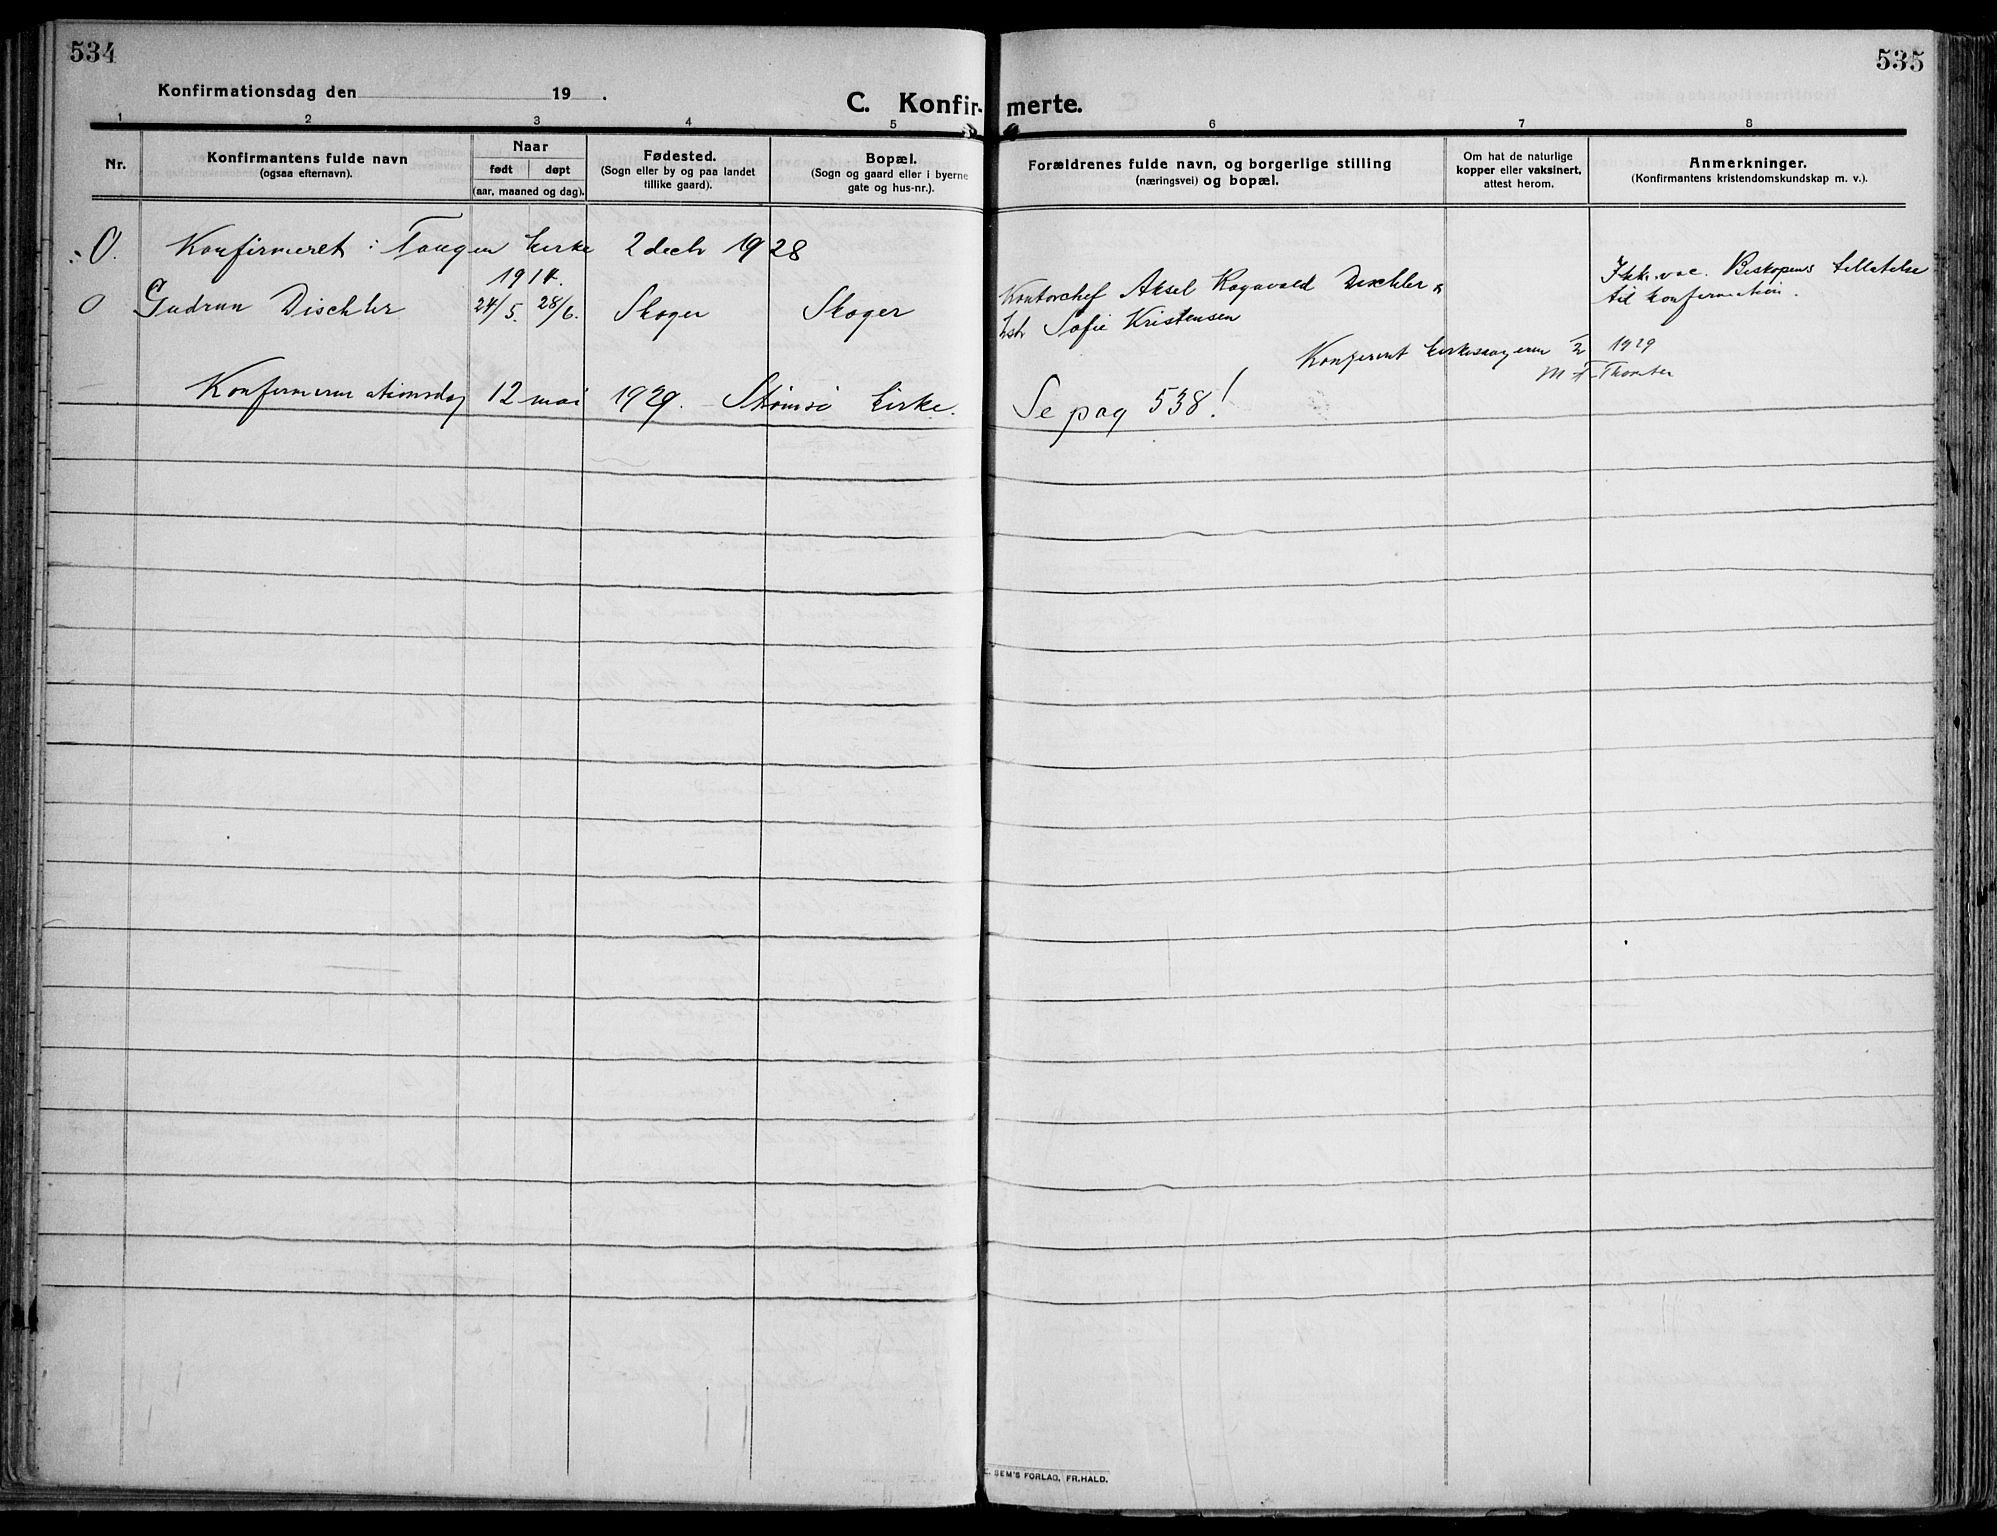 534
535
Konfirmationsdag den 19 .
C. Konfir- merte.
1 2 3 4 5 6 7 8
Nr.
Konfirmantens fulde navn
(ogsaa efternavn).
Naar
født døpt
(aar, maaned og dag).
Fødested.
(Sogn eller by og paa landet
tillike gaard).
Bopæl.
(Sogn og gaard eller i byerne
gate og hus-nr.).
Forældrenes fulde navn, og borgerlige stilling
(næringsvei) og bopæl.
Om hat de naturlige
kopper eller vaksinert,
attest herom.
Anmerkninger.
(Konfirmantens kristendomskundskap m. v.).
0. Konfirmeret i Tangen kirke 2 decbr 1928
1914.
0 Gudrun Dischler 24/5. 28/6. Skoger Skoger
Kontorchef Aksel Ragnvald Dischler &
Sofie Kristensen
Ikke vac. Biskopens tillatelse
til konfirmation.
Konferert 1929
Konfirmationsdag 12 mai 1929. Strømsø kirke. Se pag 538!
SEM'S FORLAG, FR.HALD.